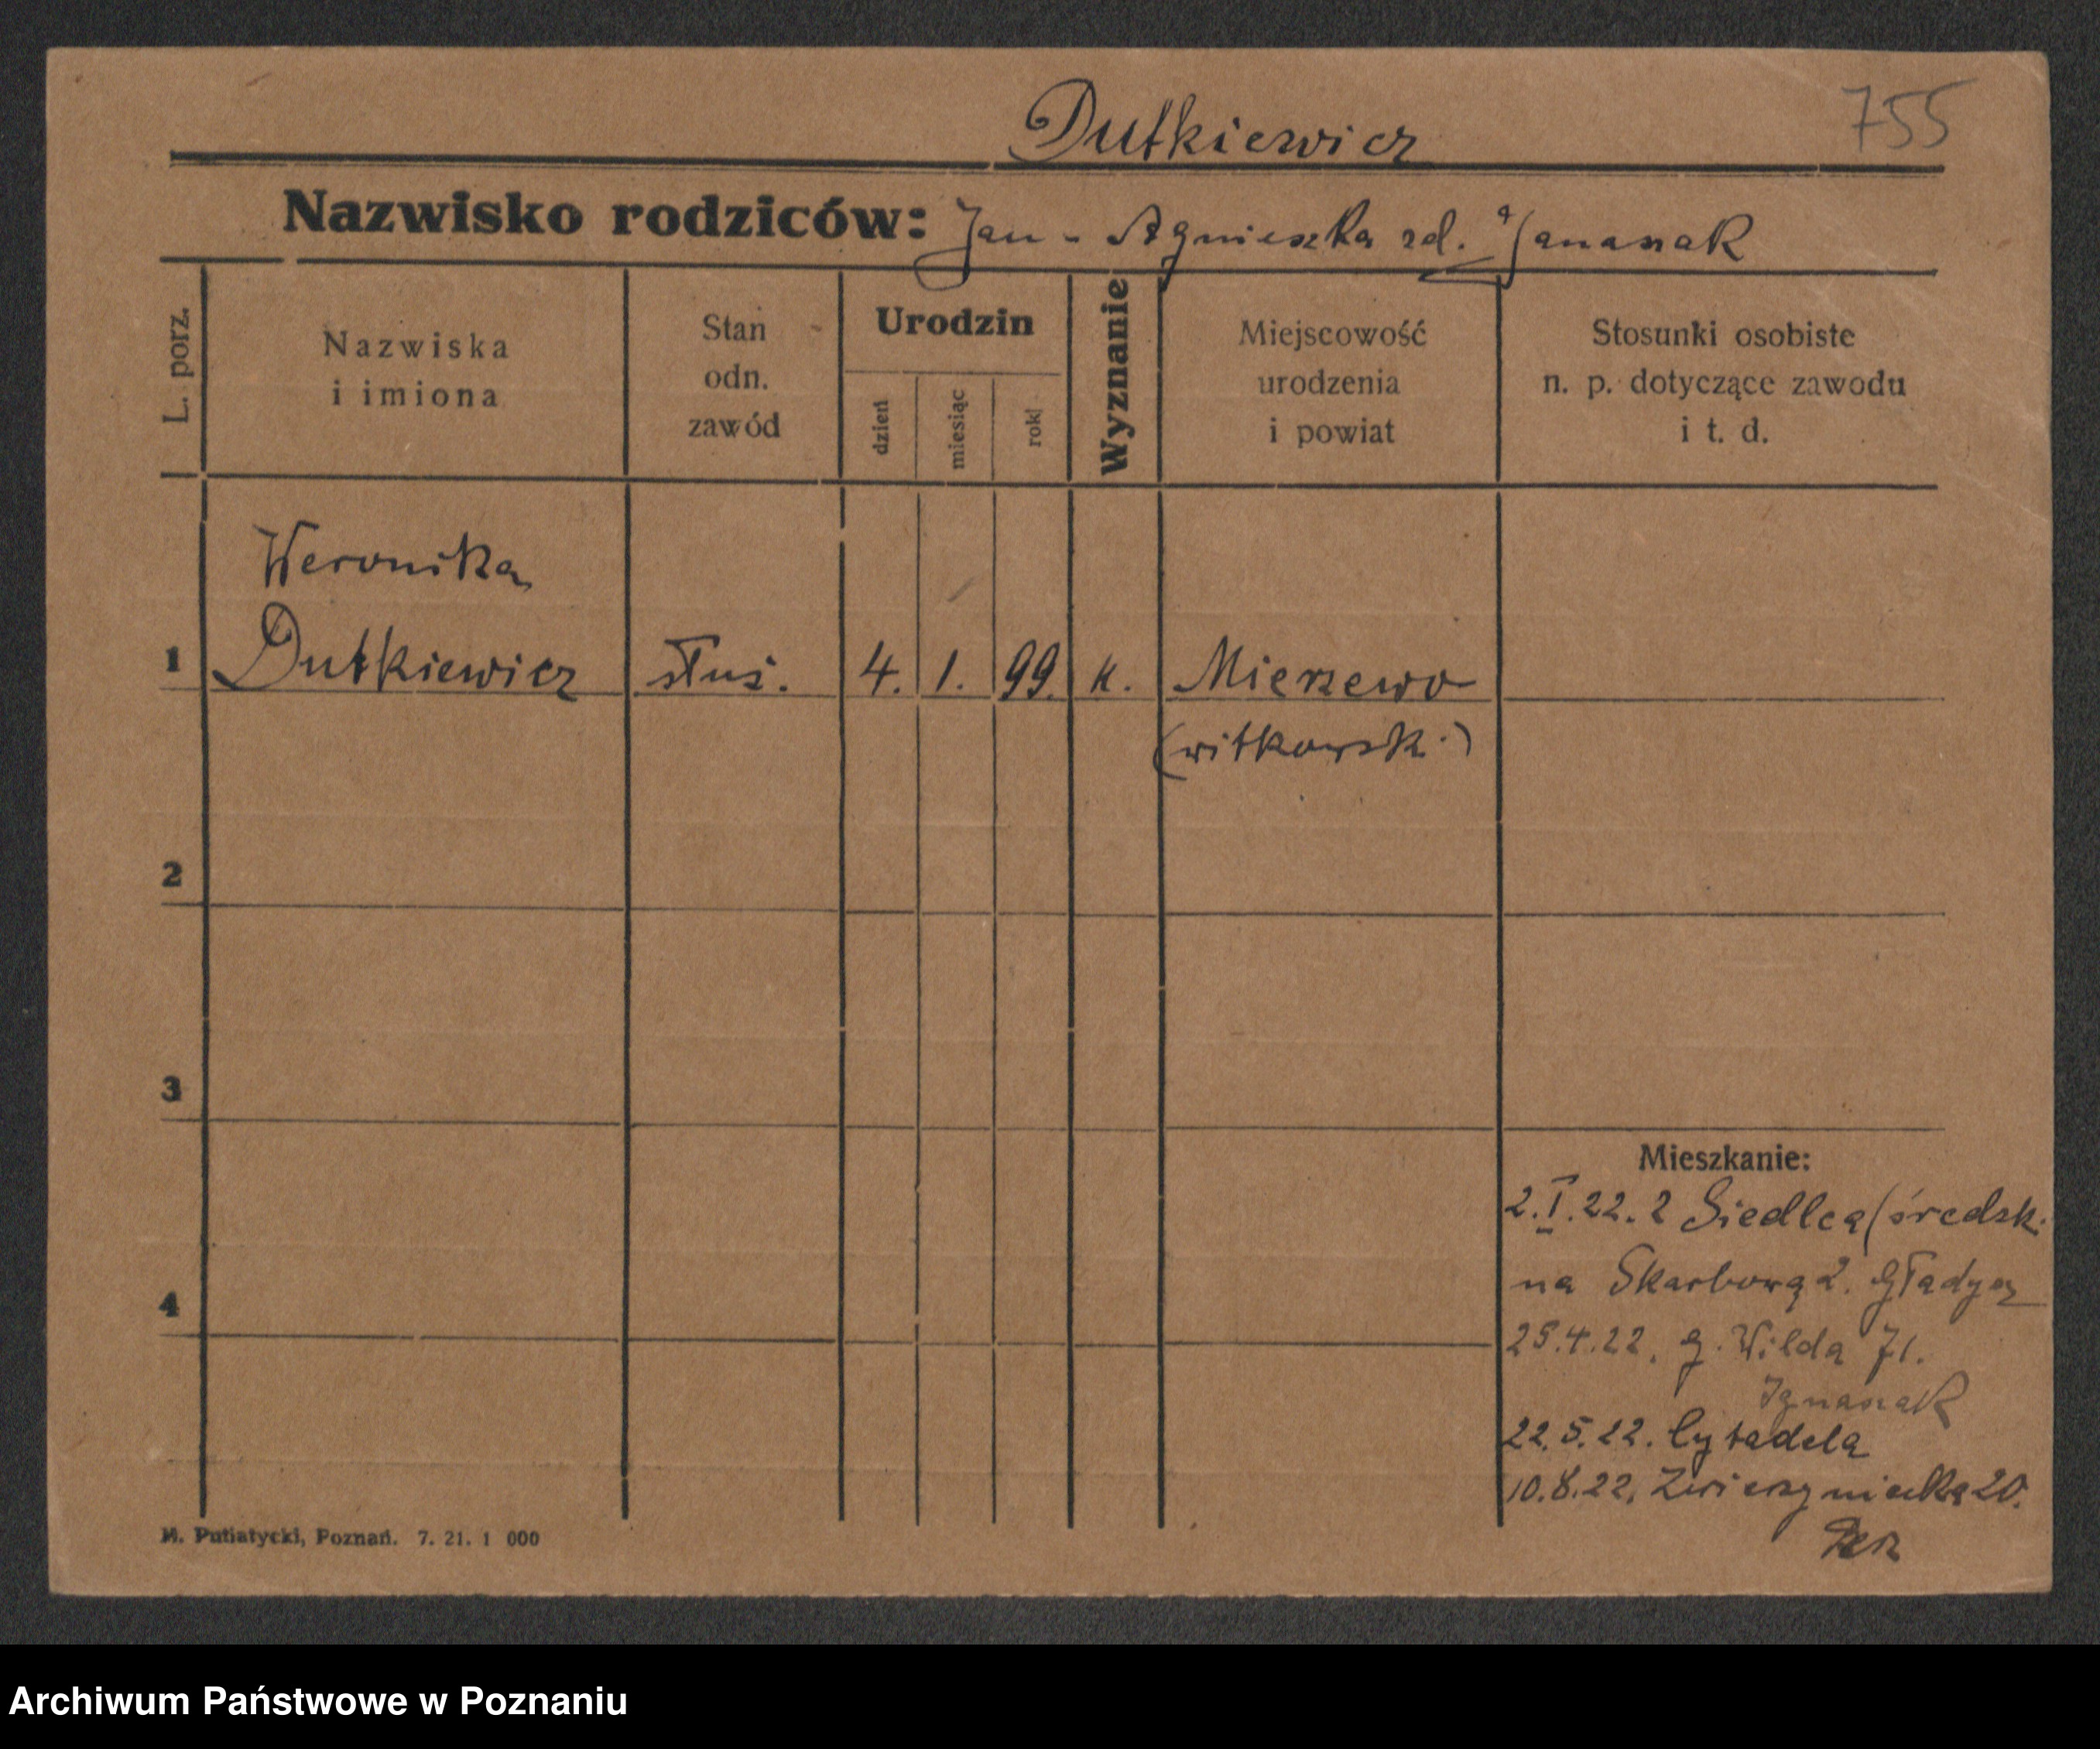 755
Dutkiewicz
Nazwisko rodziców: Jan - Agnieszka zd.
L. porz.
Nazwiska
i imiona
Stan
odn.
zawód
Urodzin
dzień
miesiąc
rok
Wyznanie
Miejscowość
urodzenia
i powiat
Stosunki osobiste
n. p. dotyczące zawodu
i t. d.
Weronika
1 Dutkiewicz służ. 4. 1. 99. k. Mierzewo
(witkowsk.)
2
3
4
Mieszkanie:
2.I.22. z Siedlca (średzk.
na Skarbową 2.
25.4.22. g. Wilda 71.
22.5.22. Cytadela
10.8.22. Zwierzyniecka 20.
M. Putiatycki, Poznań. 7. 21. 1 000
Archiwum Państwowe w Poznaniu